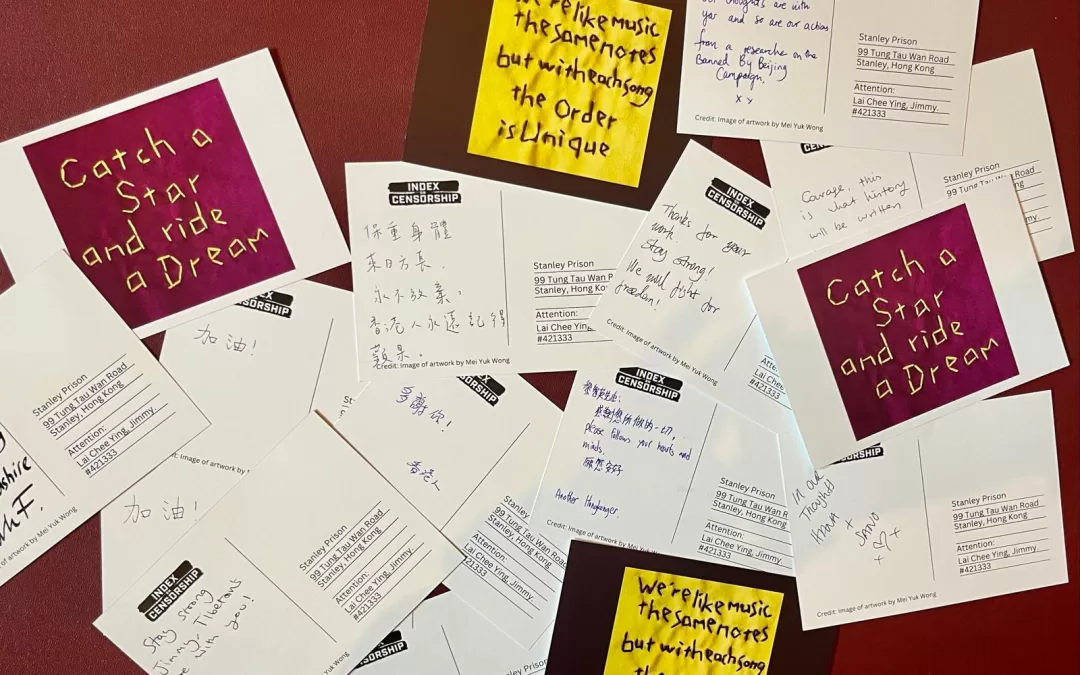 We're like music
the same notes
but with each song
the Order
is Unique
our thoughts are with
you and so are our actions
from a researcher on the
Banned By Beijing
Campaign.
x x
Credit: Image of artwork by Mei Yuk Wong
Stanley Prison
99 Tung Tau Wan Road
Stanley, Hong Kong
Attention:
Lai Chee Ying, Jimmy.
#421333
Catch a
Star
and ride
a Dream
INDEX
CENSORSHIP
保重身體
來日方長，
永不放棄，
香港人永遠記得
蘋果。
Credit: Image of artwork by Mei Yuk Wong
Stanley Prison
99 Tung Tau Wan R
Stanley, Hong Ko
Attention:
Lai Chee Ying
#421333
INDEX
CENSORSHIP
Thanks for your
work.
Stay strong!
We will fight for
freedom!
Credit: Image of artwork by Mei Yuk Wong
Atte
Lai C
#421
CENSORSHIP
Courage, this
is what history
will be written
Stanley Prison
99 Tung Tau Wan Road
Catch a
Star
and ride
a Dream
CENSORSHIP
加油！
Stanley Prison
99 Tung Tau Wan Road
Stanley, Hong Kong
Attention:
Lai Chee Ying, Jimmy.
#421333
of artwork by Mei Yuk Wong
: Image of artwork by
加油！
CENSORSHIP
多謝你！
香港人
Stanley Prison
99 Tung Tau Wan
Stanley, Hong Kong
Attention:
Lai Chee Ying
#421333
INDEX
CENSORSHIP
感謝您所做的一切，
please follows your hearts and
minds.
願您安好
Another Hongkonger.
Credit: Image of artwork by Mei Yuk Won
Stanley Prison
99 Tung Tau Wan R
Stanley, Hong Kon
Attention:
Lai Chee Ying, Jimm
#421333
CENSORSHIP
In our
Thoughts
Stanley Prison
99 Tung Tau Wan Road
Stanley, Hong Kong
Attention:
Lai Chee Ying, Jimmy.
#421333
Credit: Image of artwork by Mei Yuk Wong
INDEX
CENSORSHIP
Stay strong
Jimmy, Tibetans
with you!
Stanley Prison
99 Tung Tau Wan Road
Stanley, Hong Kong
Attention:
Lai Chee Ying, Jimmy.
#421333
CENSORSHIP
Stanley Prison
We're like music
the same notes
but with each song